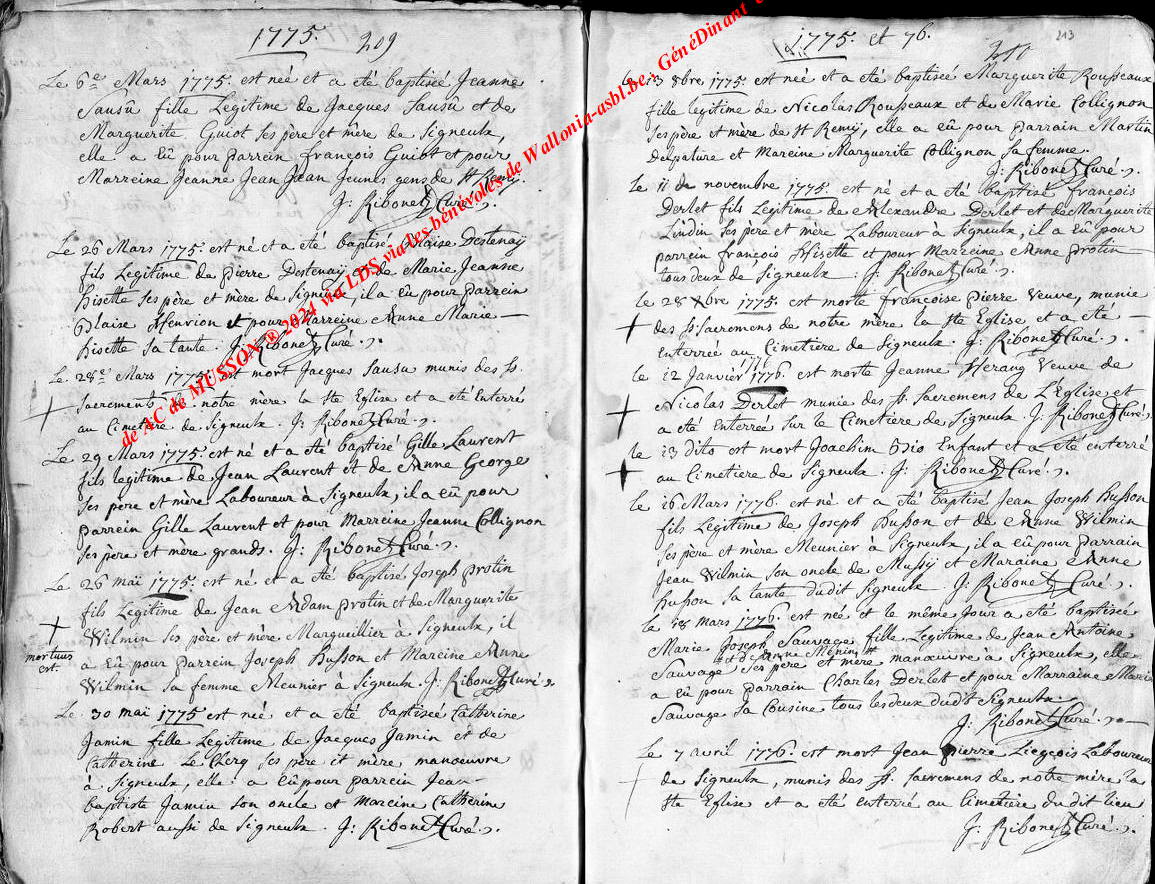 1775. 209
Le 6e Mars 1775 est née et a été baptisée Jeanne
Sausû fille Legitime de Jacques Sausû et de
Marguerite Guiot ses père et mère de Signeulx,
elle a eû pour parrein françois Guiot et pour
Marreine Jeanne Jean Jean Jeunes gens de St Remy.
J: Ribonet Curé.
Le 26 Mars 1775 est né et a été baptisé Blaise Destenaÿ
fils Legitime de pierre Destenaÿ et de Marie Jeanne
hisette ses père et mère de Signeulx, il a eû pour parrein
Blaise Henrion et pour Marreine Anne Marie
hisette sa tante. J: Ribonet Curé.
Le 28e Mars 1775 est mort Jacques Sausu munis des SS.
Sacrements de notre mere la Ste Eglise et a été Enterré
au Cimetiere de Signeulx. J: Ribonet Curé.
Le 29 Mars 1775 est né et a été baptisé Gille Laurent
fils legitime de Jean Laurent et de Anne George
ses pere et mère Laboureur à Signeulx, il a eû pour
parrein Gille Laurent et pour Marreine Jeanne Collignon
ses pere et mère grands. J: Ribonet Curé.
Le 26 mai 1775 est né et a été baptisé Joseph protin
fils Legitime de Jean Adam protin et de Marguerite
Wilmin ses père et mère Margueillier à Signeulx, il
mortuus est.
a eû pour parrein Joseph husson et Mareine Anne
Wilmin sa femme Meunier à Signeulx. J: Ribonet Curé.
Le 30 mai 1775 est née et a été baptisée Catherine
Jamin fille Legitime de Jacques Jamin et de
Catherine Le Clerq ses père et mère manœuvre
à Signeulx, elle a eû pour parrein Jean
baptiste Jamin son oncle et Mareine Catherine
Robert aussi de Signeulx. J: Ribonet Curé.
1775. et 76. 210
213
le 13 8bre 1775 est née et a été baptisée Marguerite Rousseaux
fille legitime de Nicolas Rousseaux et de Marie Collignon
ses père et mère de St Remy, elle a eû pour parrain Martin
Delpature et Mareine Marguerite Collignon sa femme.
J: Ribonet Curé.
le 11 de novembre 1775 est né et a été baptisé françois
Derlet fils Legitime de Alexandre Derlet et de Marguerite
Lindin ses père et mère Laboureur à Signeulx, il a eû pour
parrein françois Hisette et pour Marreine Anne protin
tous deux de Signeulx. J: Ribonet Curé.
le 28 Xbre 1775 est morte françoise pierre veuve, munie
des SS. sacremens de notre mère la Ste Eglise et a été
enterrée au Cimetiere de Signeulx. J: Ribonet Curé.
1776
le 12 Janvier 1776 est morte Jeanne Herang veuve de
Nicolas Derlet munie des SS. sacremens de L'Eglise et
a été enterrée sur le Cimetiere de Signeulx. J: Ribonet Curé.
le 13 dito est mort Joachim Dio Enfant et a été enterré
au Cimetiere de Signeulx. J: Ribonet Curé.
le 16 Mars 1776 est né et a été baptisé Jean Joseph husson
fils Legitime de Joseph husson et de Anne Wilmin
ses père et mère Meunier à Signeulx, il a eû pour parrain
Jean Wilmin son oncle de Mussÿ et Maraine Anne
husson sa tante dudit Signeulx. J: Ribonet Curé.
le 18 Mars 1776 est née et le même Jour a été baptisée
Marie Joseph Sauvage fille Legitime de Jean Antoine
et de Anne Menin
Sauvage ses pere et mère manœuvre à Signeulx, elle
a eû pour parrain Charles Derlet et pour Marraine Marie
Sauvage sa Cousine tous les deux dudt Signeulx.
J: Ribonet Curé.
le 7 avril 1776 est mort Jean pierre Liegeois Laboureur
de Signeulx, munis des SS. sacremens de notre mère la
Ste Eglise et a été enterré au Cimetière dudit lieu
J: Ribonet Curé.
de AC de MUSSON ® 2024 via LDS via les bénévoles de Wallonia-asbl.be : GénéDinant